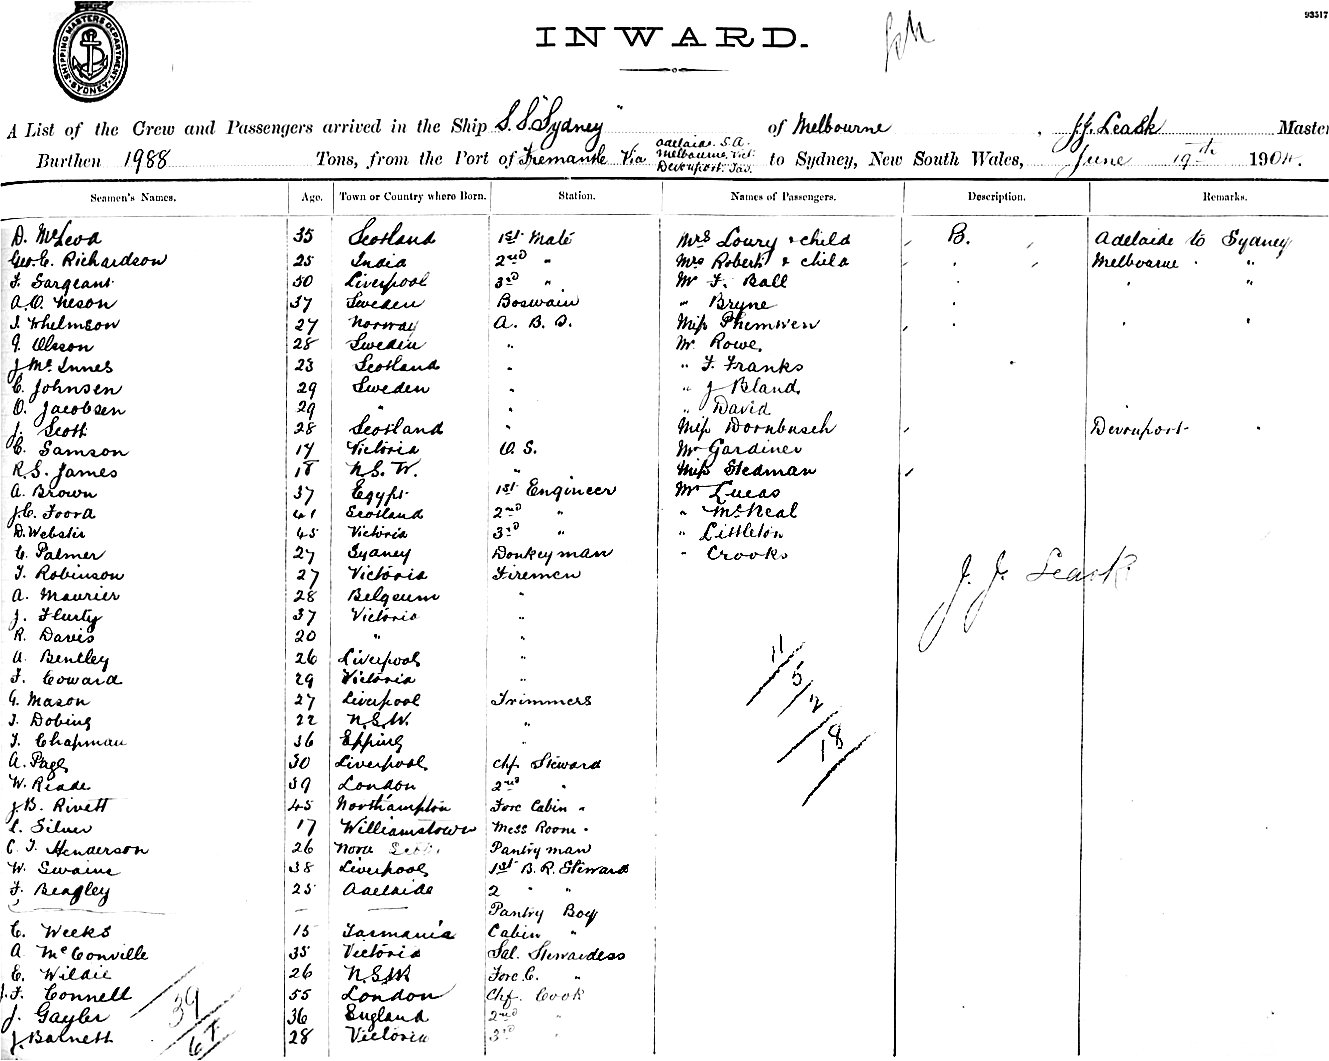 93517
SHIPPING MASTERS DEPARTMENT
SYDNEY
INWARD.
A List of the Crew and Passengers arrived in the Ship S.S. "Sydney" of Melbourne, J.J. Leask Master
Burthen 1988 Tons, from the Port of Fremantle Via Adelaide. S.A. Melbourne. Vict. Devonport. Tas. to Sydney, New South Wales, June 19th 1904.
Seamen's Names. Age. Town or Country where Born. Station. Names of Passengers. Description. Remarks.
D. McLeod 35 Scotland 1st Mate Mrs Loury & child B. Adelaide to Sydney
Geo. C. Richardson 25 India 2nd " Mrs Robert & child Melbourne "
F. Sargeant 50 Liverpool 3rd " Mr F. Ball
A.O. Neson 37 Sweden Boswain " Bryne
J. Whelmson 27 Norway A. B. S. Miss Phemwen
J. Olsson 28 Sweden " Mr Rowe
J. McInnes 23 Scotland " " F. Franks
C. Johnsen 29 Sweden " " J Bland
O. Jacobsen 29 " " " David
J. Scott 28 Scotland " Miss Dornbusch Devonport
C. Samson 17 Victoria O. S. Mr Gardiner
R. S. James 18 N.S.W. " Miss Stedman
A. Brown 37 Egypt 1st Engineer Mr Lucas
J.C. Foord 41 Scotland 2nd " " McNeal
D. Webster 45 Victoria 3rd " " Littleton
C. Palmer 27 Sydney Donkeyman " Crooks
T. Robinson 27 Victoria Firemen J. J. Leask
A. Maurier 28 Belgeum "
J. Flurty 37 Victoria "
R. Davis 20 " "
A. Bentley 26 Liverpool "
F. Coward 29 Victoria "
G. Mason 27 Liverpool Trimmers
J. Dobing 22 N.S.W. "
T. Chapman 36 Epping "
A. Page 30 Liverpool Chf. Steward
W. Reade 39 London 2nd "
J.B. Rivett 45 Northampton Fore Cabin "
L. Silver 17 Williamstown Mess Room "
C. J. Henderson 26 Nova Pantryman
W. Swaine 38 Liverpool 1st B. R. Steward
F. Beagley 25 Adelaide 2 " "
Pantry Boy
C. Weeks 15 Tasmania Cabin "
A McConville 35 Victoria Sal. Stewardess
E. Wildie 26 N.S.W. Fore C. "
J. F. Connell 55 London Chf. Cook
J. Gayler 36 England 2nd "
J. Barnett 28 Victoria 3rd "
11/
5/
2/
18/
39/